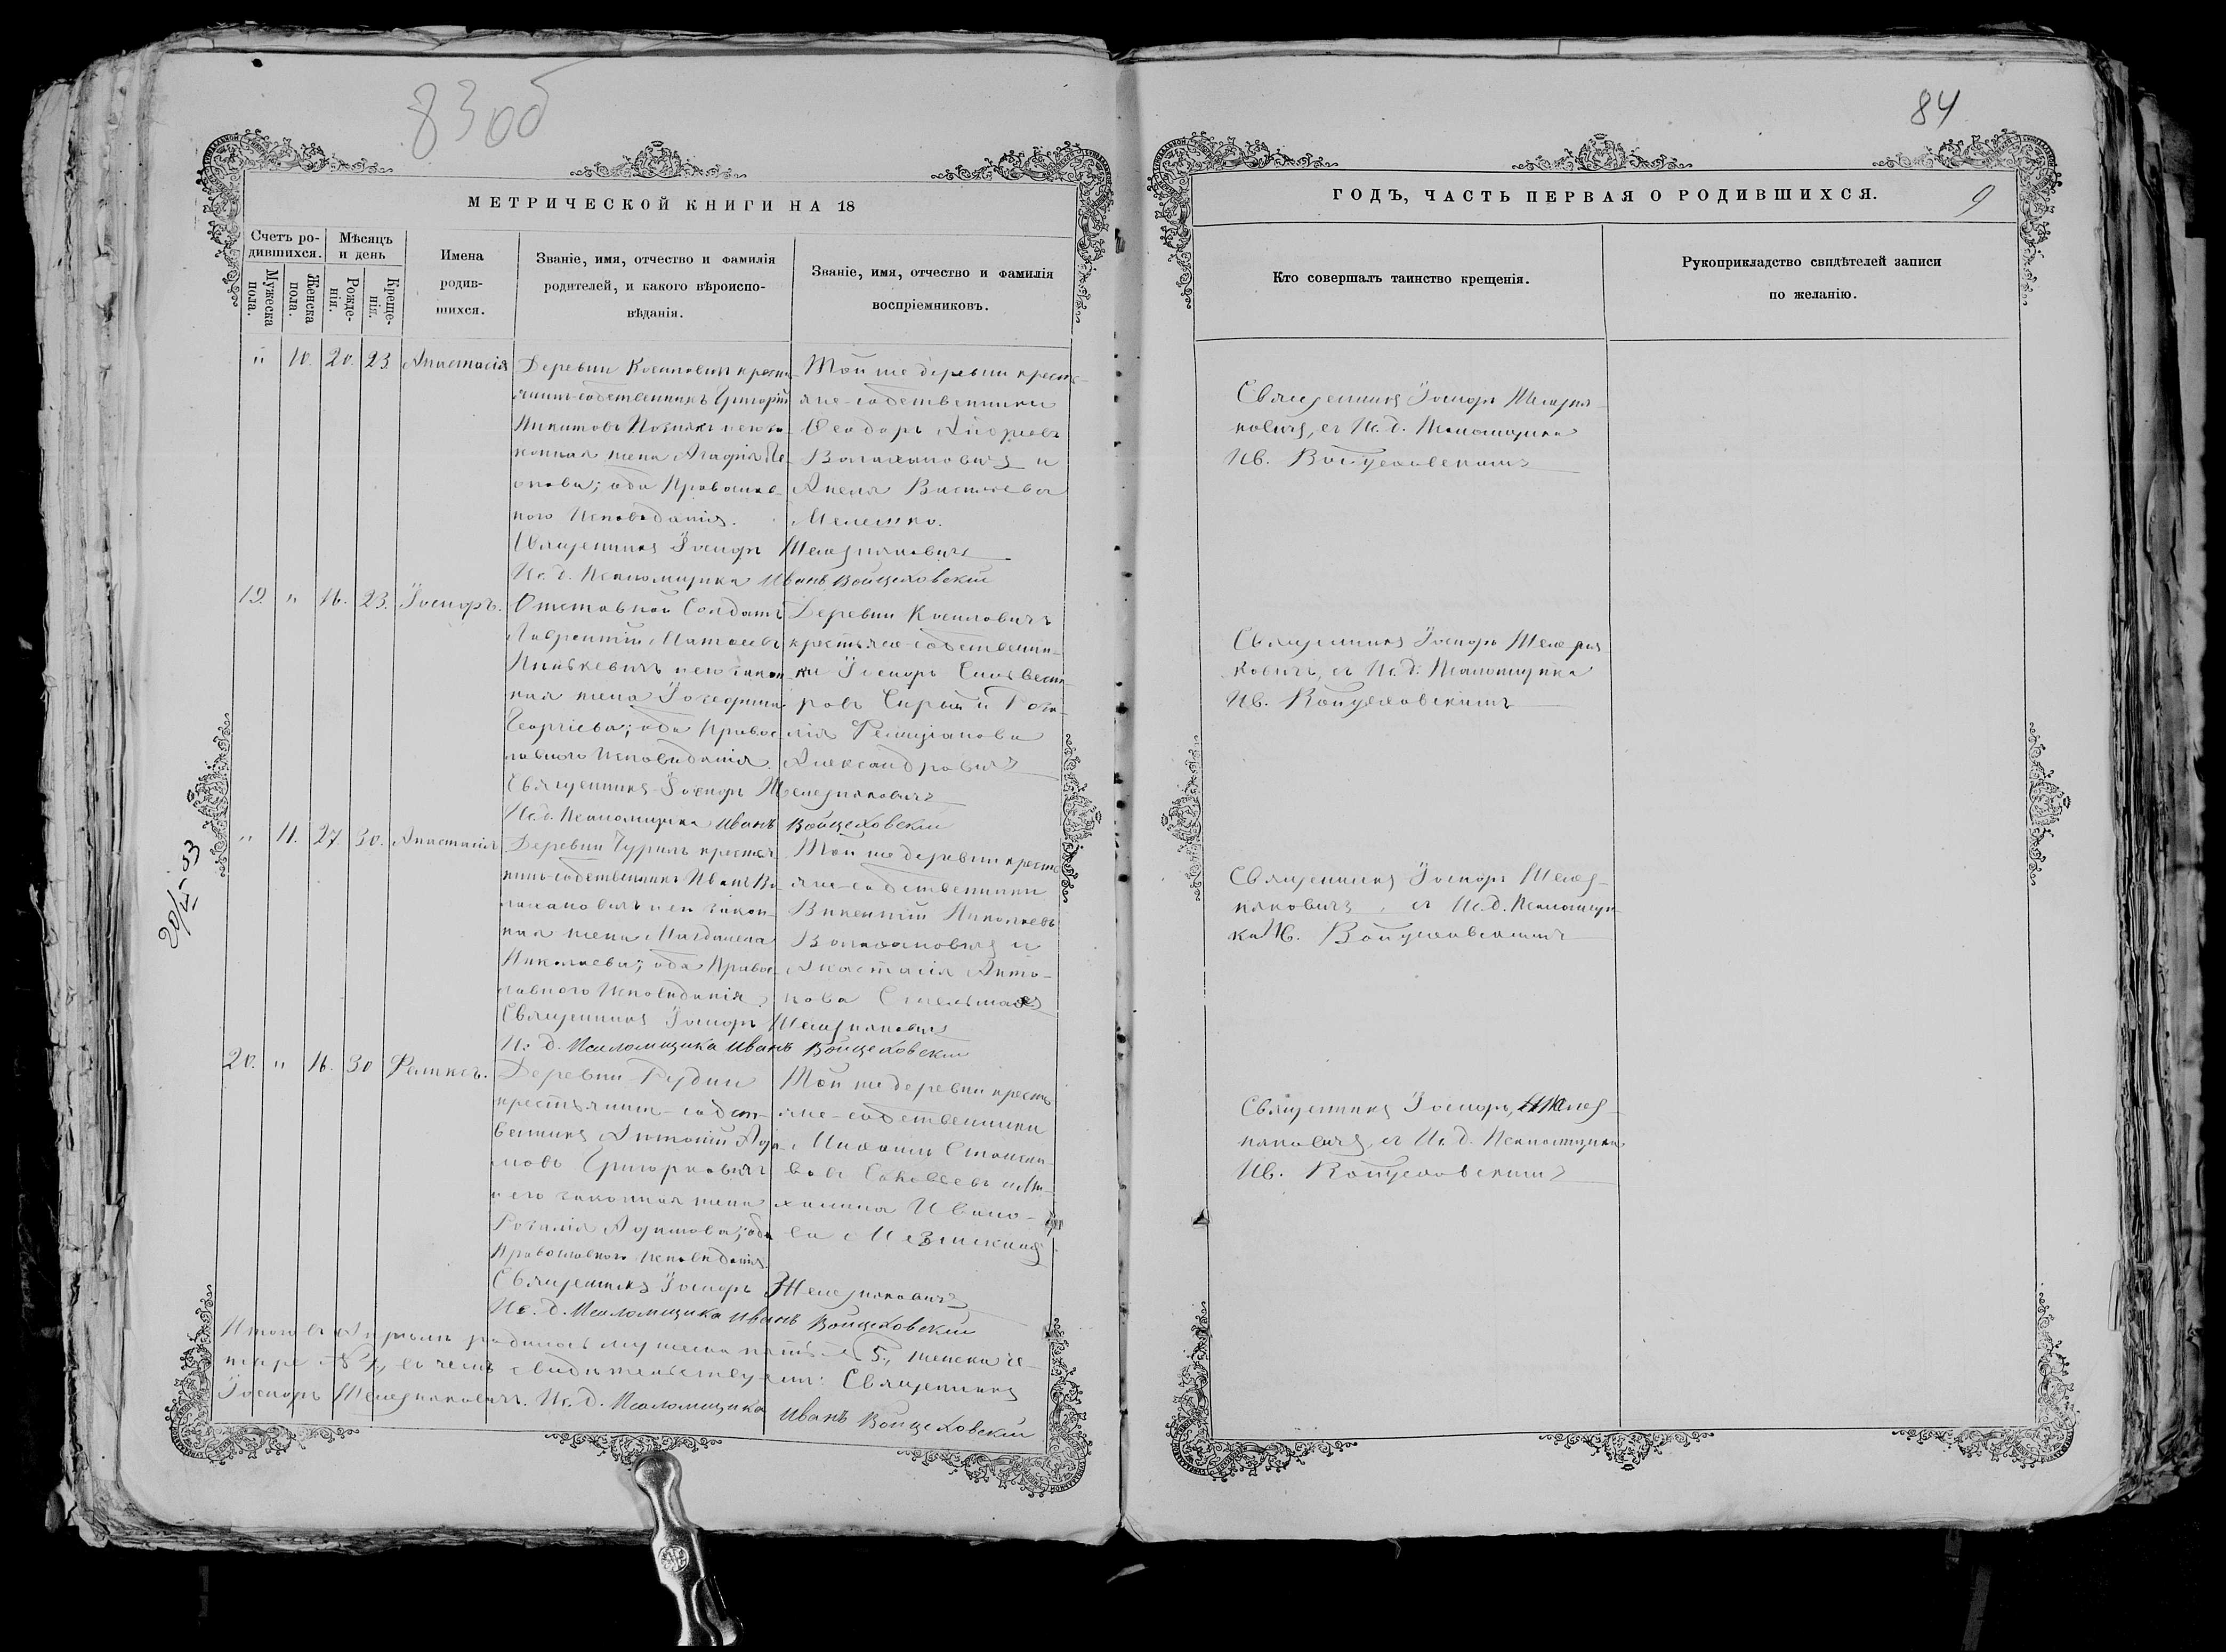 83 об
МЕТРИЧЕСКОЙ КНИГИ НА 18
Счетъ ро-
дившихся.
Мужеска
пола.
Женска
пола.
Мѣсяцъ
и день
Рожде-
нія.
Креще-
нія.
Имена
родив-
шихся.
Званіе, имя, отчество и фамилія
родителей, и какого вѣроиспо-
вѣданія.
Званіе, имя, отчество и фамилія
воспріемниковъ.
" 10. 20. 23. Анастасія
Деревни
собственникъ Григорій
Никитовъ
жена Агафія
ова; оба Православ-
наго Исповѣданія.
Той же деревни кресть-
яне-собственники
Ѳеодоръ
Волахановичъ и
Васильева
Мелешко.
Священникъ Іосифъ Железняковичъ
Ис. д. Псаломщика Иванъ Войцеховскій
19. " 16. 23. Іосифъ.
Отставной Солдатъ
Лаврентій
и его закон
ная жена Іозефина
Георгіева; оба Правос
лавнаго Исповѣданія.
Деревни
крестьяне-собственни-
ки Іосифъ Сильвест
ровъ и Роза-
лія Фелиціанова
Александровичъ
Священникъ Іосифъ Железняковичъ
Ис. д. Псаломщика Иванъ Войцеховскій
20/ІІ-53
" 11. 27. 30. Анастасія
Деревни крестья
нинъ-собственникъ Иванъ Во
лахановичъ и его закон-
ная жена Магдалена
Николаева; оба Правос-
лавнаго Исповѣданія
Той же деревни кресть
яне-собственники
Викентій Николаевъ
Волахановичъ и
Анастасія Анто-
нова Стельмахъ
Священникъ Іосифъ Железняковичъ
Ис. д. Псаломщика Иванъ Войцеховскій
20. " 16. 30 Феликсъ.
Деревни Рудни
крестьянинъ-собст-
венникъ Антоній Ада
мовъ Григорковичъ
и его законная жена
Розалія Адамова; оба
Православнаго Исповѣданія.
Той же деревни кресть
яне-собственники
Михаилъ
вовъ
халина Ивано-
ва
Священникъ Іосифъ Железняковичъ
Ис. д. Псаломщика Иванъ Войцеховскій
Итого въ Апрѣлѣ родилось мужеска пять № 5., женска че-
тыре № 4, въ чемъ свидѣтельствуемъ: Священникъ
Іосифъ Железняковичъ. Ис. д. Псаломщика Иванъ Войцеховскій
84
ГОДЪ, ЧАСТЬ ПЕРВАЯ О РОДИВШИХСЯ.
9
Кто совершалъ таинство крещенія.
Рукоприкладство свидѣтелей записи
по желанію.
Священникъ Іосифъ Железня
ковичъ, съ Ис. д. Псаломщика
Ив. Войцеховскимъ
Священникъ Іосифъ Железня
ковичъ, съ Ис. д. Псаломщика
Ив. Войцеховскимъ
Священникъ Іосифъ Желез-
няковичъ, съ Ис. д. Псаломщи
ка Ив. Войцеховскимъ
Священникъ Іосифъ Желез-
няковичъ, съ Ис. д. Псаломщика
Ив. Войцеховскимъ